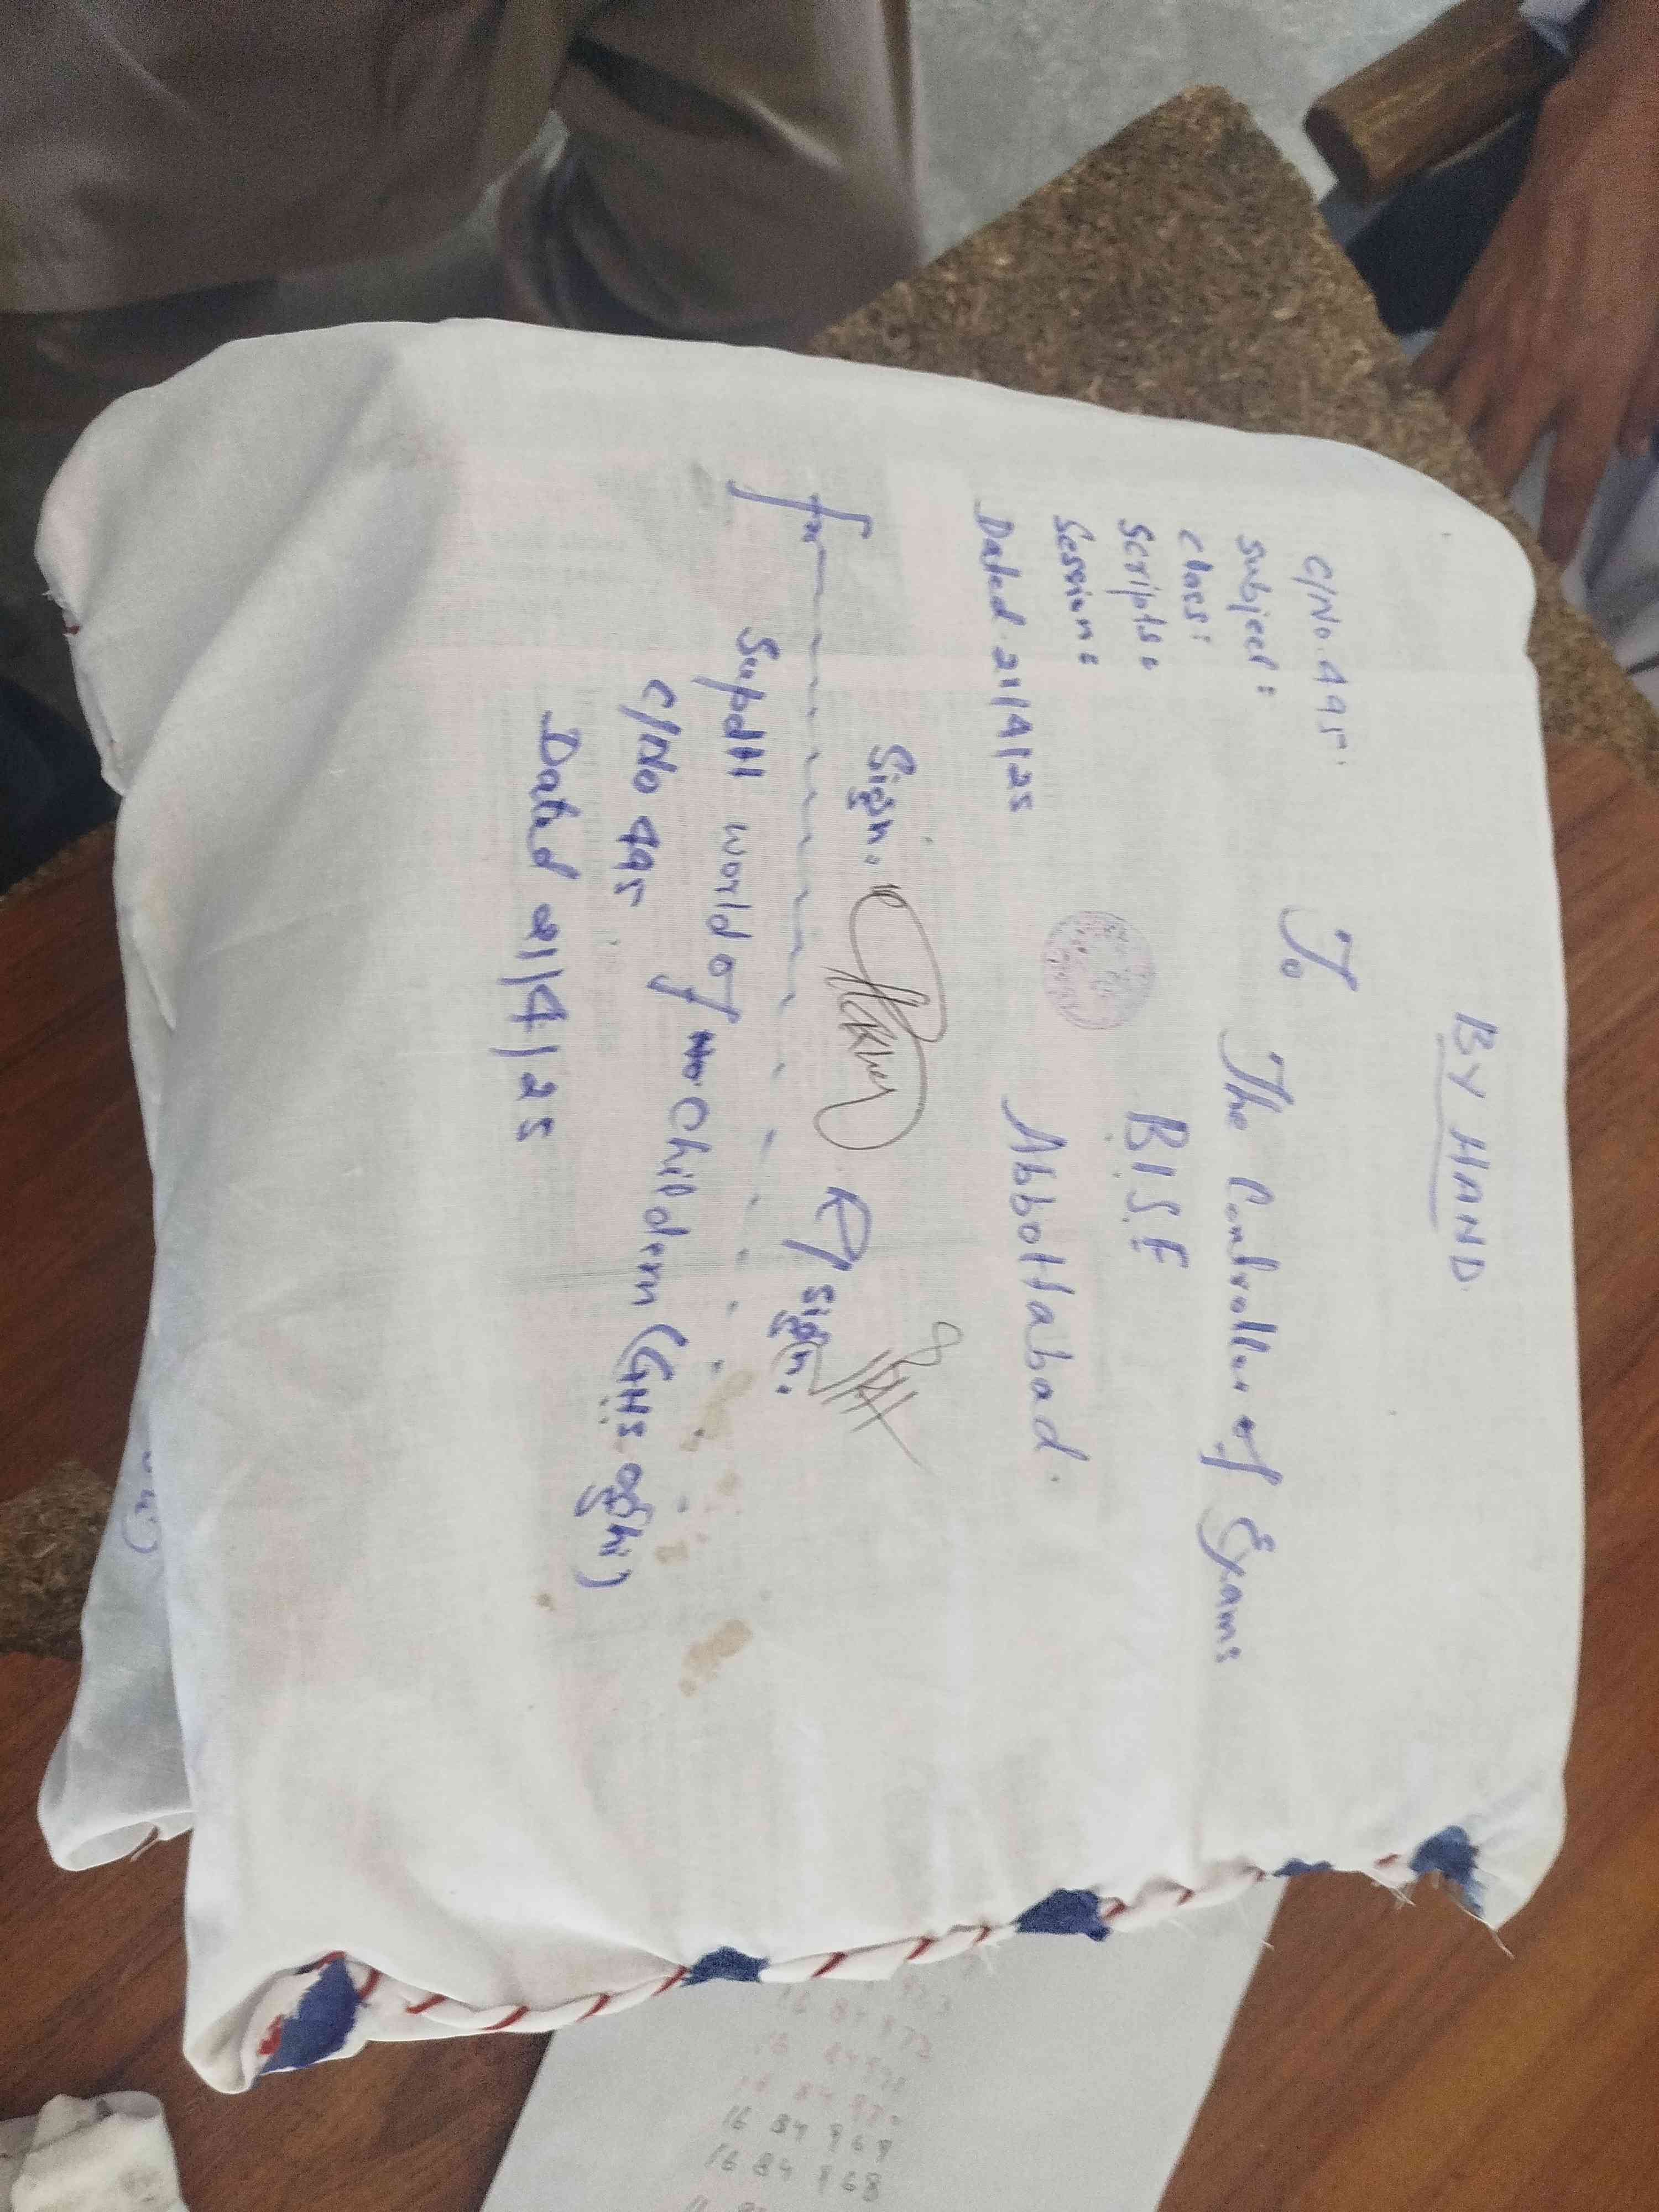 BY HAND
C/No. 495.
To
Subject:
The Controller of Exams
Class:
Scripts:
B.I.S.E
Session:
Abbottabad.
Dated 21/4/25
Sign.
Sign.
from
Supdtt world of Children (GHS oghi)
C/No 495
Dated 21/4/25
16 84 972
16 84 969
16 84 968